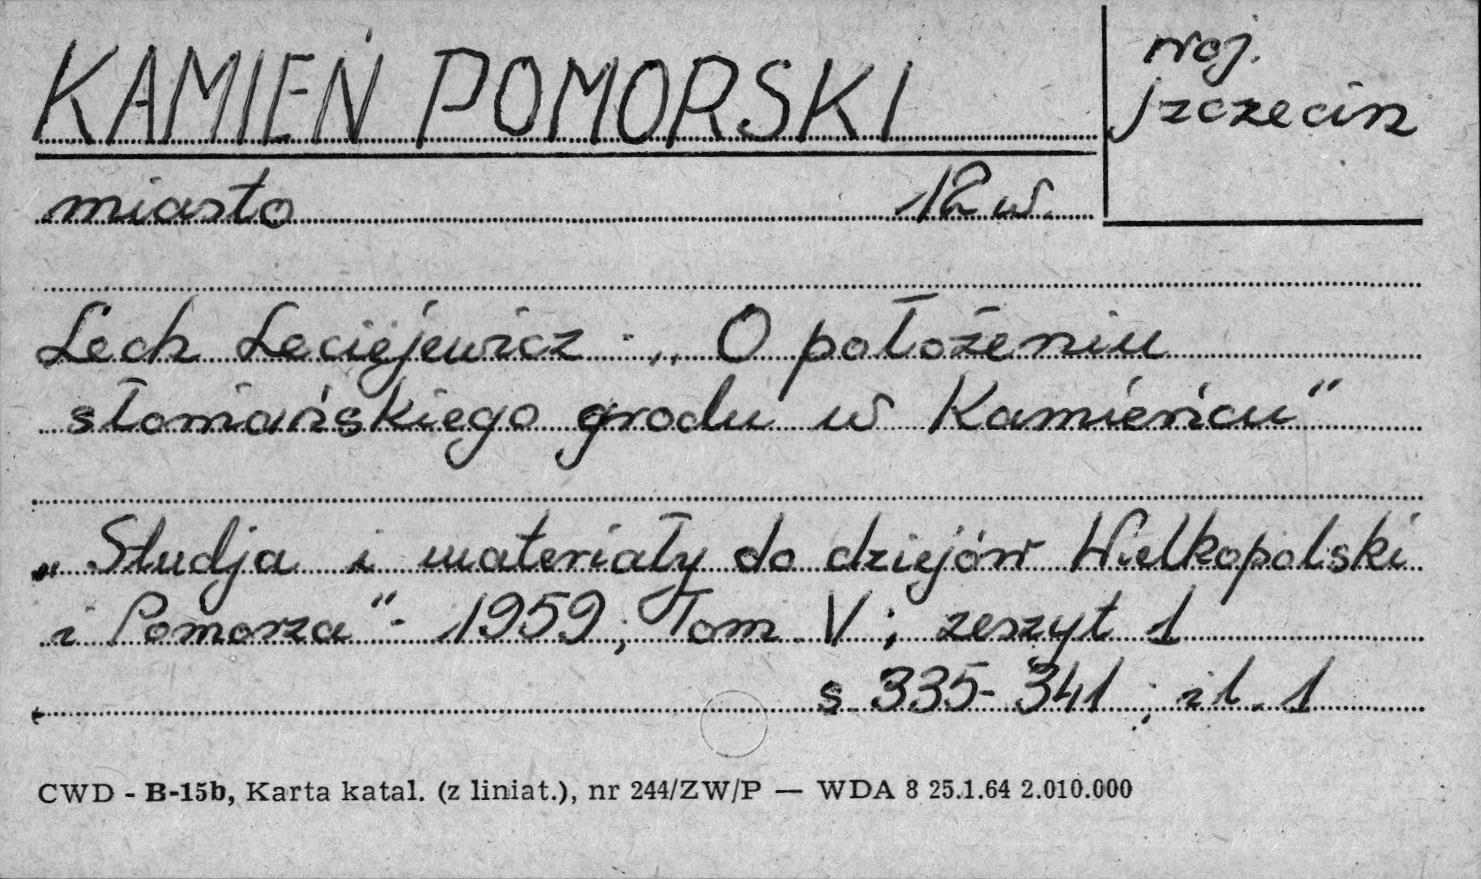 KAMIEŃ POMORSKI
woj.
szczecin
miasto 12 w.
Lech Leciejewicz - „O położeniu
słowiańskiego grodu w Kamieńcu"
„Studja i materiały do dziejów Wielkopolski
i Pomorza" - 1959; Tom V; zeszyt 1
s 335-341; il. 1
CWD - B-15b, Karta katal. (z liniat.), nr 244/ZW/P — WDA 8 25.1.64 2.010.000